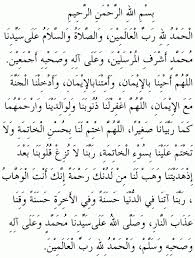 بِسْمِ اللهِ الرَّحْمٰنِ الرَّحِيْمِ
الْحَمْدُ لِلّٰهِ رَبِّ الْعَالَمِيْنَ، وَالصَّلَاةُ وَالسَّلَامُ عَلَى سَيِّدِنَا
مُحَمَّدٍ أَشْرَفِ الْمُرْسَلِيْنَ، وَعَلَى آلِهِ وَصَحْبِهِ أَجْمَعِيْنَ.
اَللّٰهُمَّ أَحْيِنَا بِالْإِيْمَانِ، وَأَمِتْنَا بِالْإِيْمَانِ، وَأَدْخِلْنَا الْجَنَّةَ
مَعَ الْإِيْمَانِ، اَللّٰهُمَّ اغْفِرْ لَنَا ذُنُوْبَنَا وَلِوَالِدَيْنَا وَارْحَمْهُمَا
كَمَا رَبَّيَانَا صَغِيْرًا، اَللّٰهُمَّ اخْتِمْ لَنَا بِحُسْنِ الْخَاتِمَةِ وَلَا
تَخْتِمْ عَلَيْنَا بِسُوْءِ الْخَاتِمَةِ، رَبَّنَا لَا تُزِغْ قُلُوْبَنَا بَعْدَ
إِذْ هَدَيْتَنَا وَهَبْ لَنَا مِنْ لَدُنْكَ رَحْمَةً إِنَّكَ أَنْتَ الْوَهَّابُ
، رَبَّنَا آتِنَا فِي الدُّنْيَا حَسَنَةً وَفِي الْآخِرَةِ حَسَنَةً وَقِنَا
عَذَابَ النَّارِ، وَصَلَّى اللهُ عَلَى سَيِّدِنَا مُحَمَّدٍ وَعَلَى آلِهِ
وَصَحْبِهِ وَسَلَّمَ، وَالْحَمْدُ لِلّٰهِ رَبِّ الْعَالَمِيْنَ.